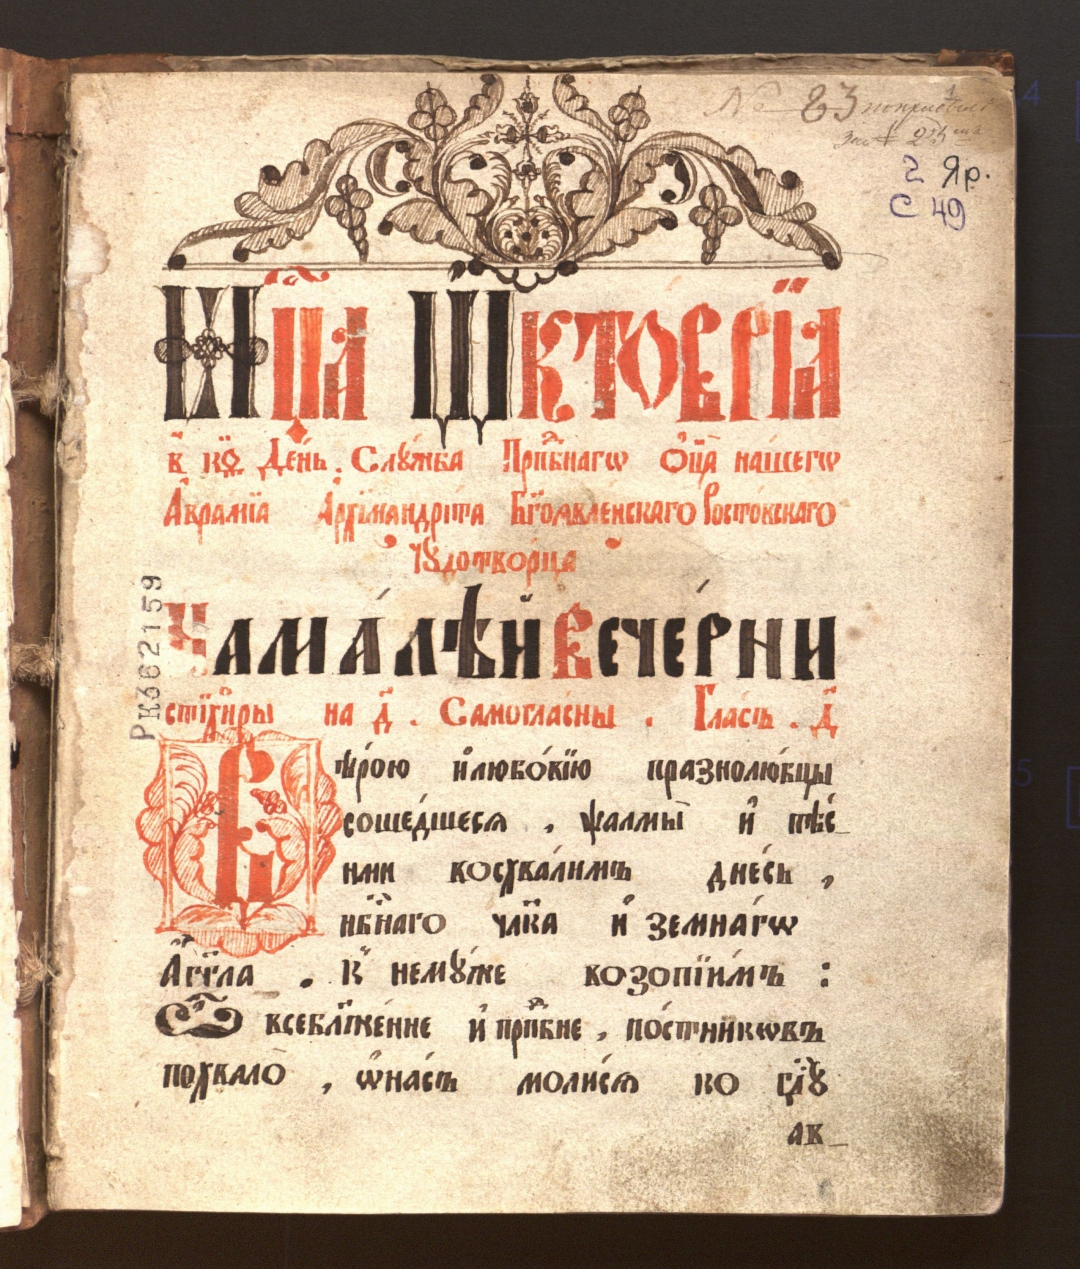 № 83
2 Яр.
С 49
Мц҃а Ѡктовріа
в҃ к҃ѳ День. Служба Прпⷣбнагѡ Оц҃а нашегѡ
Аврамїа Архїмандріта Бг҃оѧвленскаго Ростовскаго
Чудотворца
РК362159
НАМАЛѢЙ ВЕЧЕРНИ
стїхиры на д҃. Самогласны. Гласъ. д҃
Вѣрою илюбовїю празнолюбцы
сошедшеся, ѱалмы и пѣс
ньми восхвалимъ днесь,
нбⷭнаго чл҃ка и земнагѡ
Аг҃гла. К немуже возопїимъ:
Ѽ всебл҃женне и прпⷣбне, постникѡвъ
похвало, ѡнасъ молися ко гдⷭу
ав